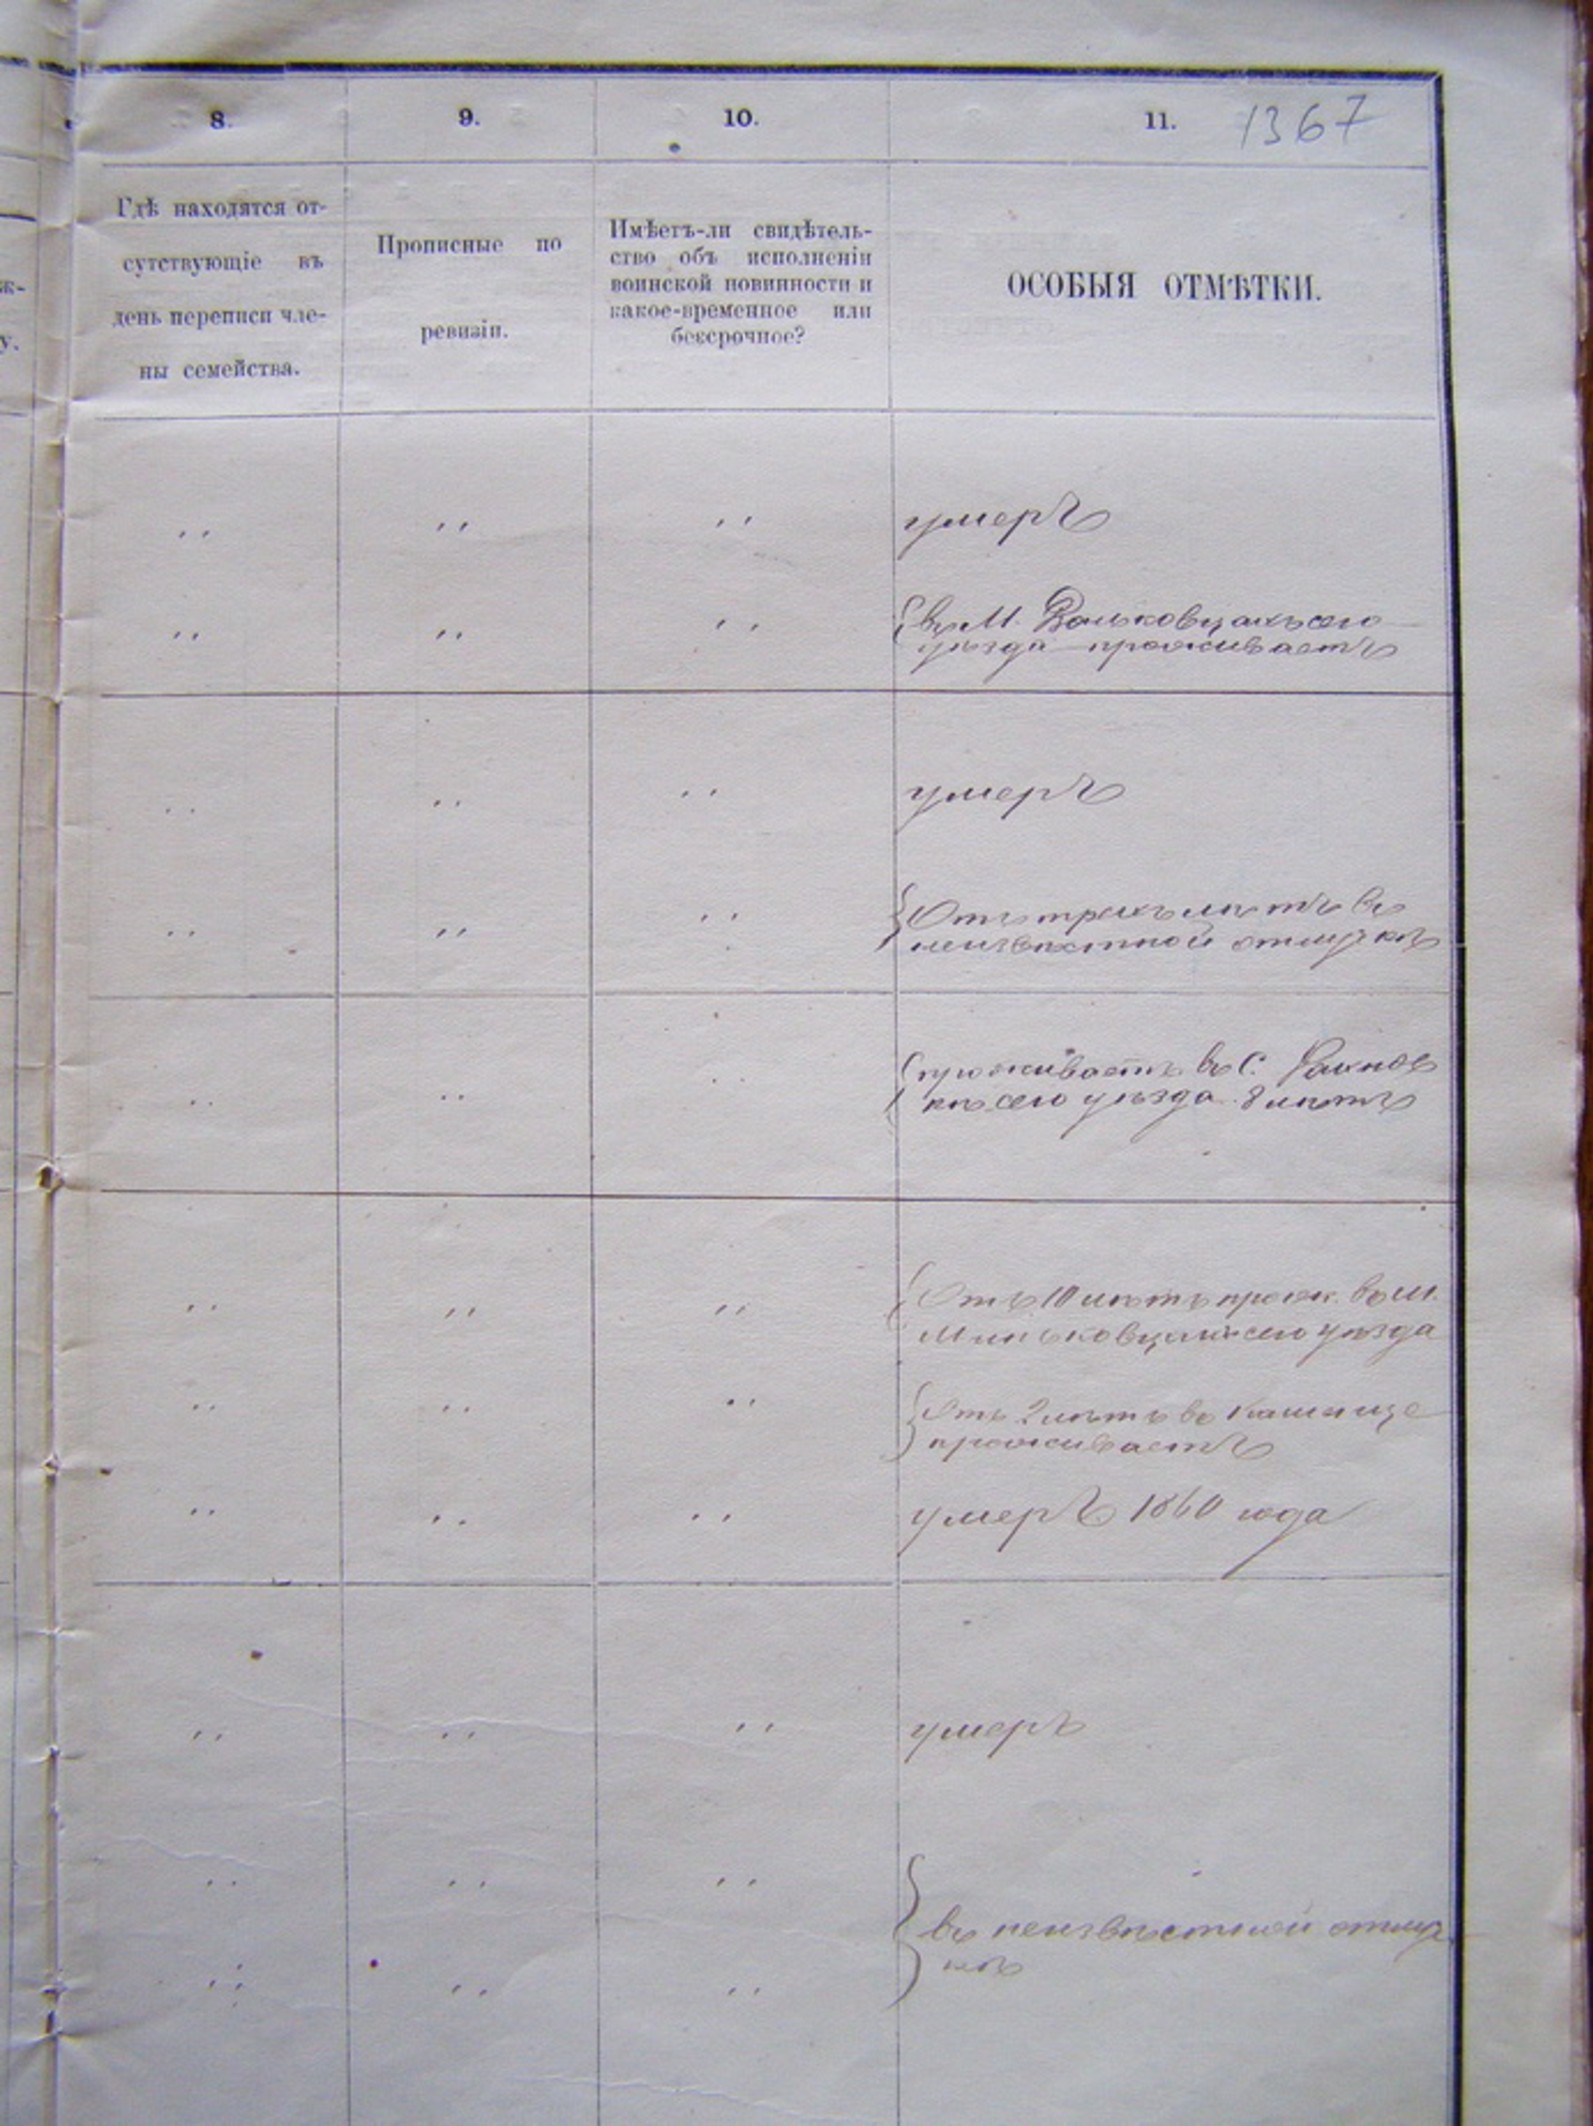 8. 9. 10. 11. 1367
Гдѣ находятся от-
сутствующіе въ
день переписи чле-
ны семейства.
Прописные по
ревизіи.
Имѣетъ-ли свидѣтель-
ство объ исполненіи
воинской повинности и
какое-временное или
безсрочное?
ОСОБЫЯ ОТМѢТКИ.
ж-
у.
,, ,, ,, умеръ
,, ,, ,, въ М. сего
уѣзда проживаетъ
,, ,, ,, умеръ
,, ,, ,, Отъ трехъ лѣтъ въ
неизвѣстной отлучкѣ
,, ,, ,, проживаетъ въ С.
сего уѣзда 8 лѣтъ
,, ,, ,, Отъ 10 лѣтъ прож. въ М.
Миньковцахъ сего уѣзда
,, ,, ,, Отъ 2 лѣтъ въ
проживаетъ
,, ,, ,, умеръ 1860 года
,, ,, ,, умеръ
,, ,, ,,
въ неизвѣстной отлуч
кѣ
,, ,, ,,